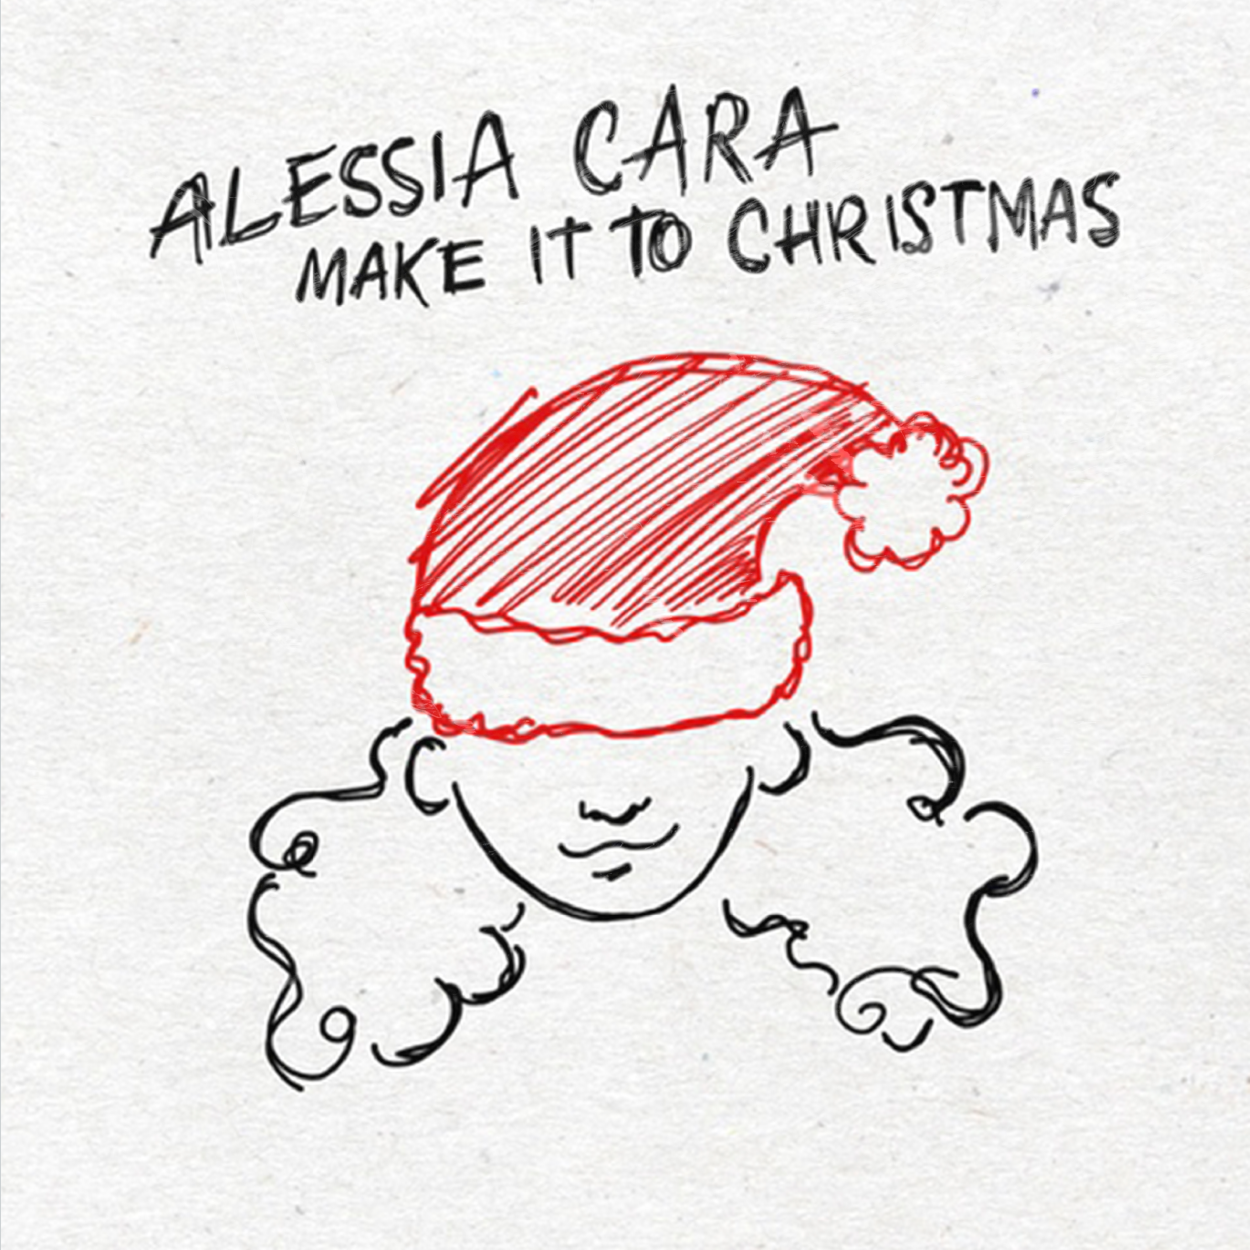 ALESSIA CARA
MAKE IT TO CHRISTMAS